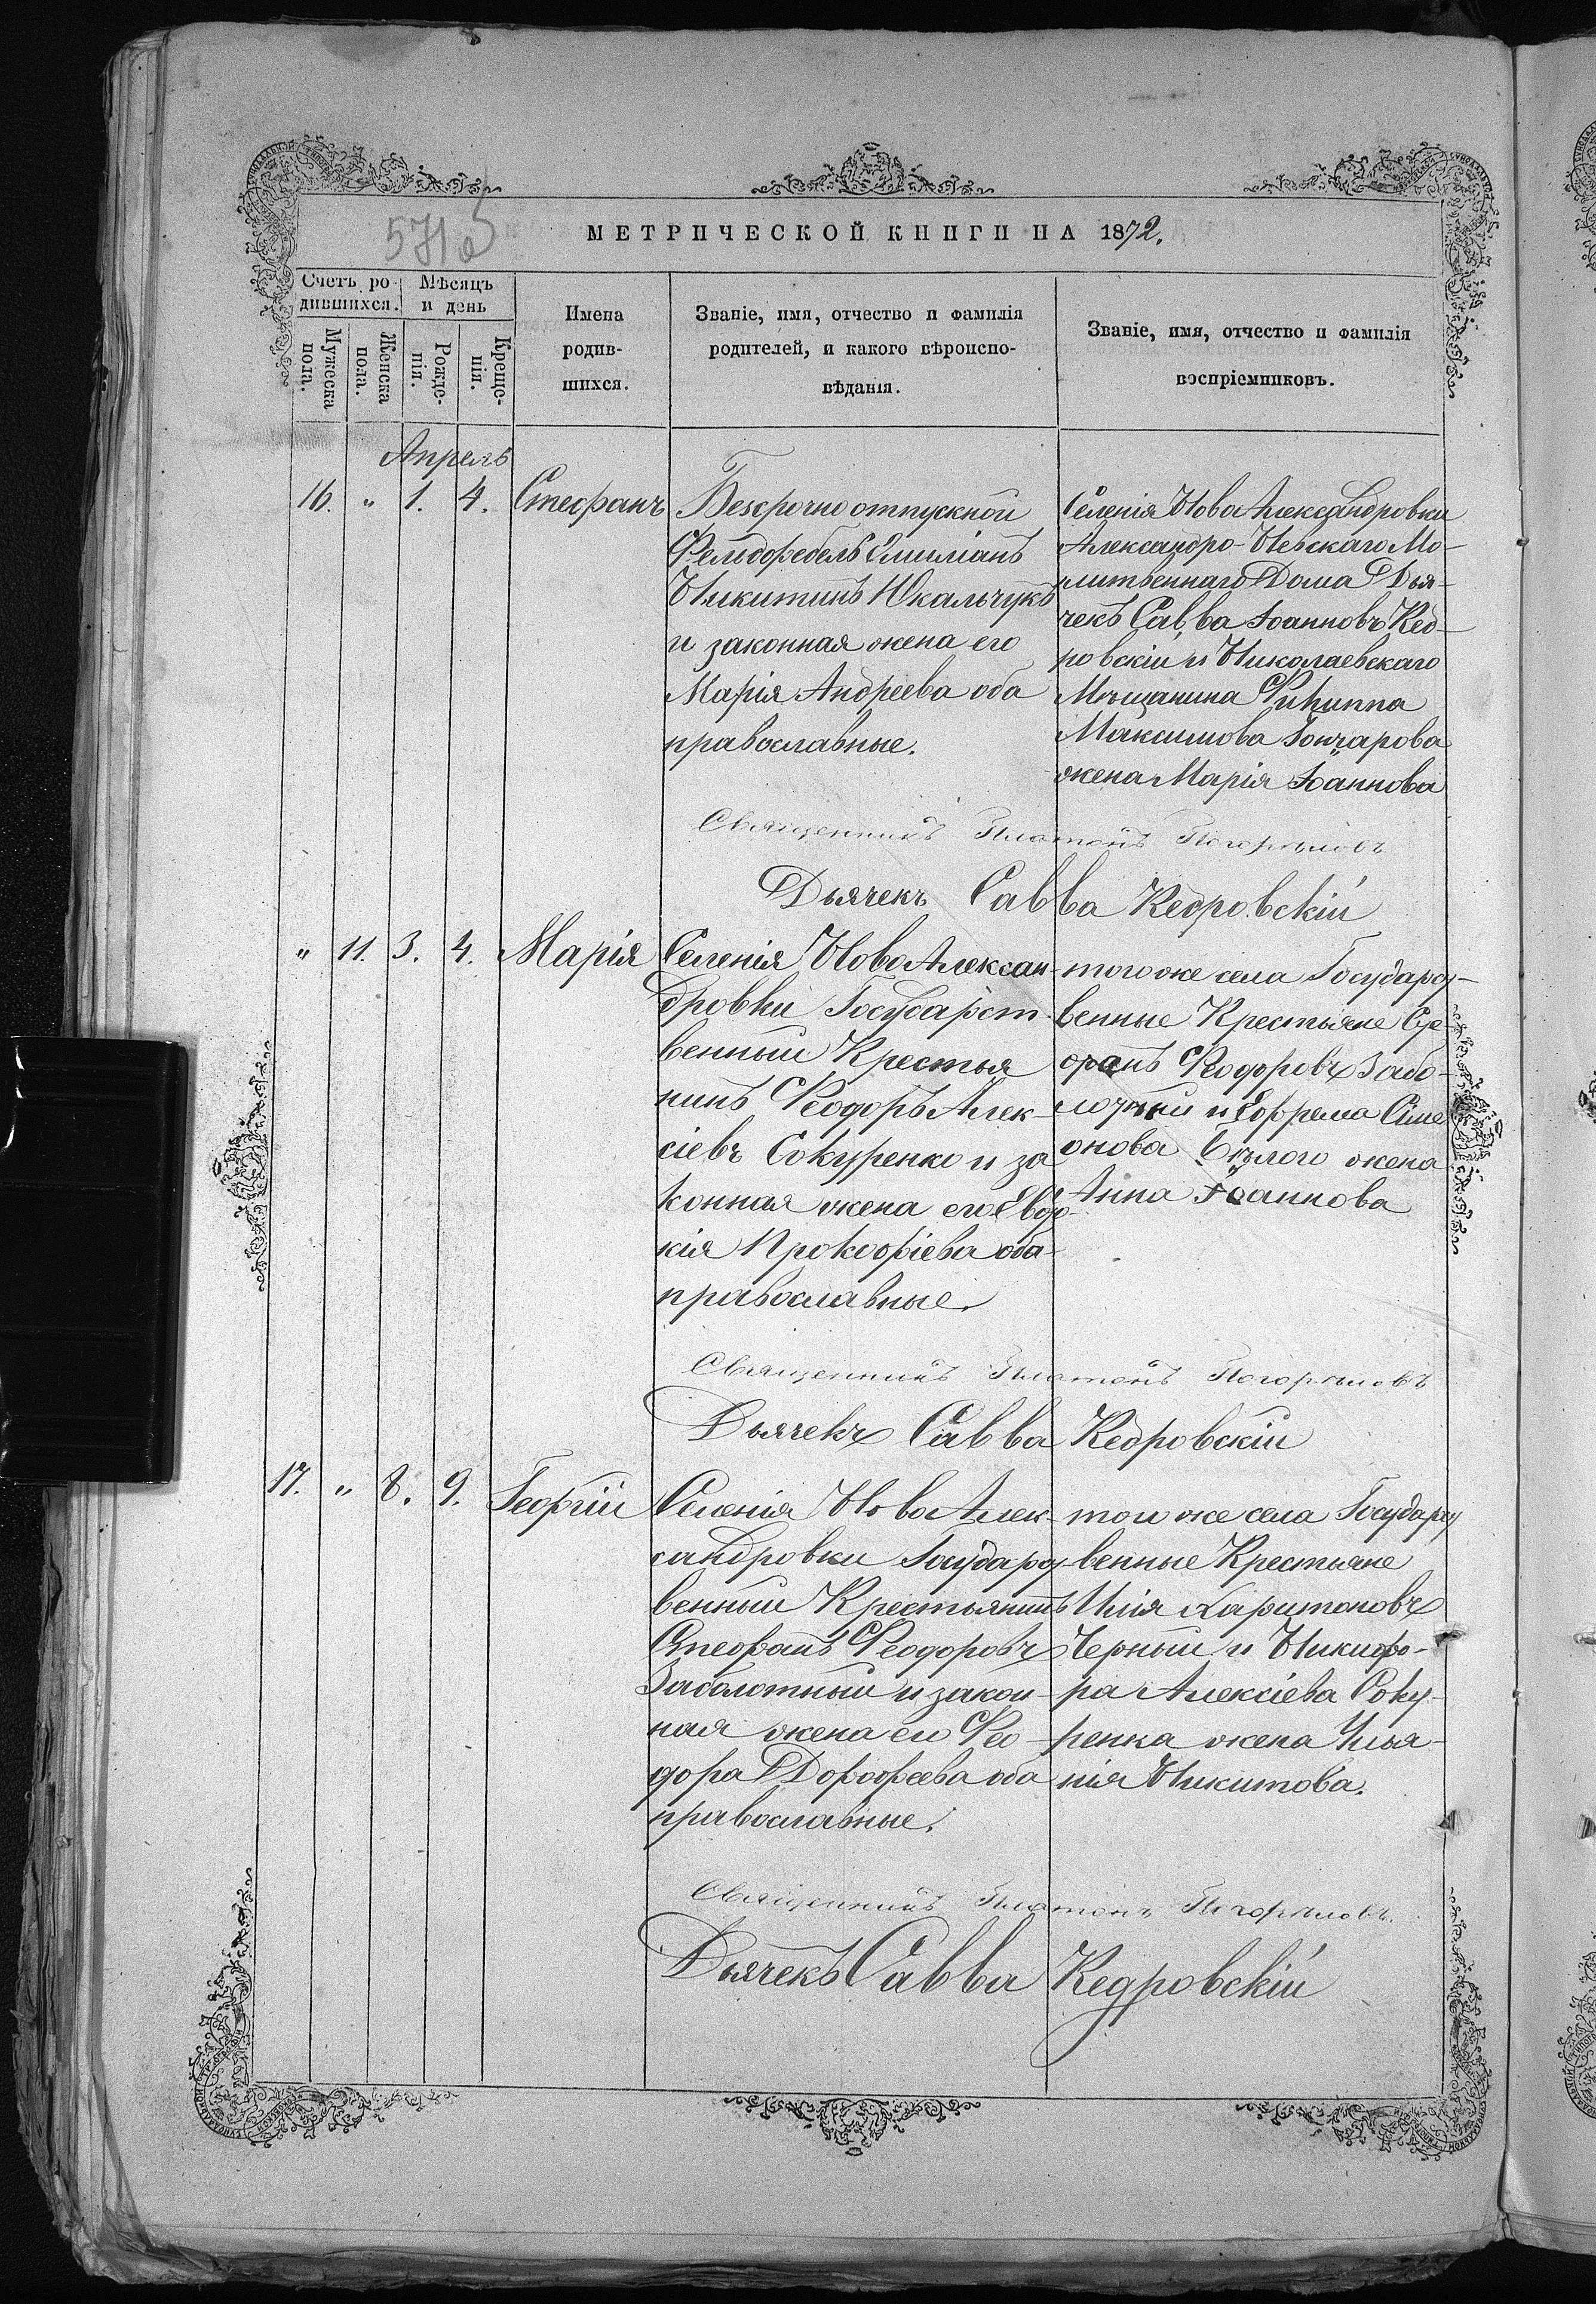 МЕТРИЧЕСКОЙ КНИГИ НА 1872.
Счетъ ро-
дившихся.
Мѣсяцъ
и день
Мужеска
пола.
Женска
пола.
Рожде-
нія.
Креще-
нія.
Имена
родив-
шихся.
Званіе, имя, отчество и фамилія
родителей, и какого вѣроиспо-
вѣданія.
Званіе, имя, отчество и фамилія
воспріемниковъ.
Апрель
16. " 1. 4. Стефанъ
Безсрочно отпускной
Фельдфебель Емиліанъ
Никитинъ Юкальчукъ
и законная жена его
Марія Андреева оба
православные.
Селенія Ново Александровки
Александро-Невскаго Мо-
литвеннаго Дома Дья-
чекъ Савва Іоанновъ Кед-
ровскій и Николаевскаго
Мѣщанина Филиппа
Максимова Гончарова
жена Марія Іоаннова
Священникъ Платонъ Погорѣловъ
Дьячекъ Савва Кедровскій
" 11. 3. 4. Марія
Селенія НовоАлексан-
дровки Государст
венный Крестья
нинъ Ѳеодоръ Алек-
сіевъ Сокуренко и за
конная жена его Евдо-
кія Прокофіева оба
православные.
того же села Государст-
венные Крестьяне Сте-
фанъ Ѳеодоровъ Забо-
лотный и Ефрема Симе
онова Бѣлого жена
Анна Іоаннова
Священникъ Платонъ Погорѣловъ
Дьячекъ Савва Кедровскій
17. " 8. 9. Георгій
Селенія НовоАлек-
сандровки Государст-
венный Крестьянинъ
Стефанъ Ѳеодоровъ
Заболотный и закон-
ная жена его Ѳео-
дора Дорофеева оба
православные.
того же села Государст
венные Крестьяне
Илія Харитоновъ
Черный и Никифо-
ра Алексіева Соку-
ренка жена Улья-
нія Никитова.
Священникъ Платонъ Погорѣловъ.
Дьячекъ Савва Кедровскій